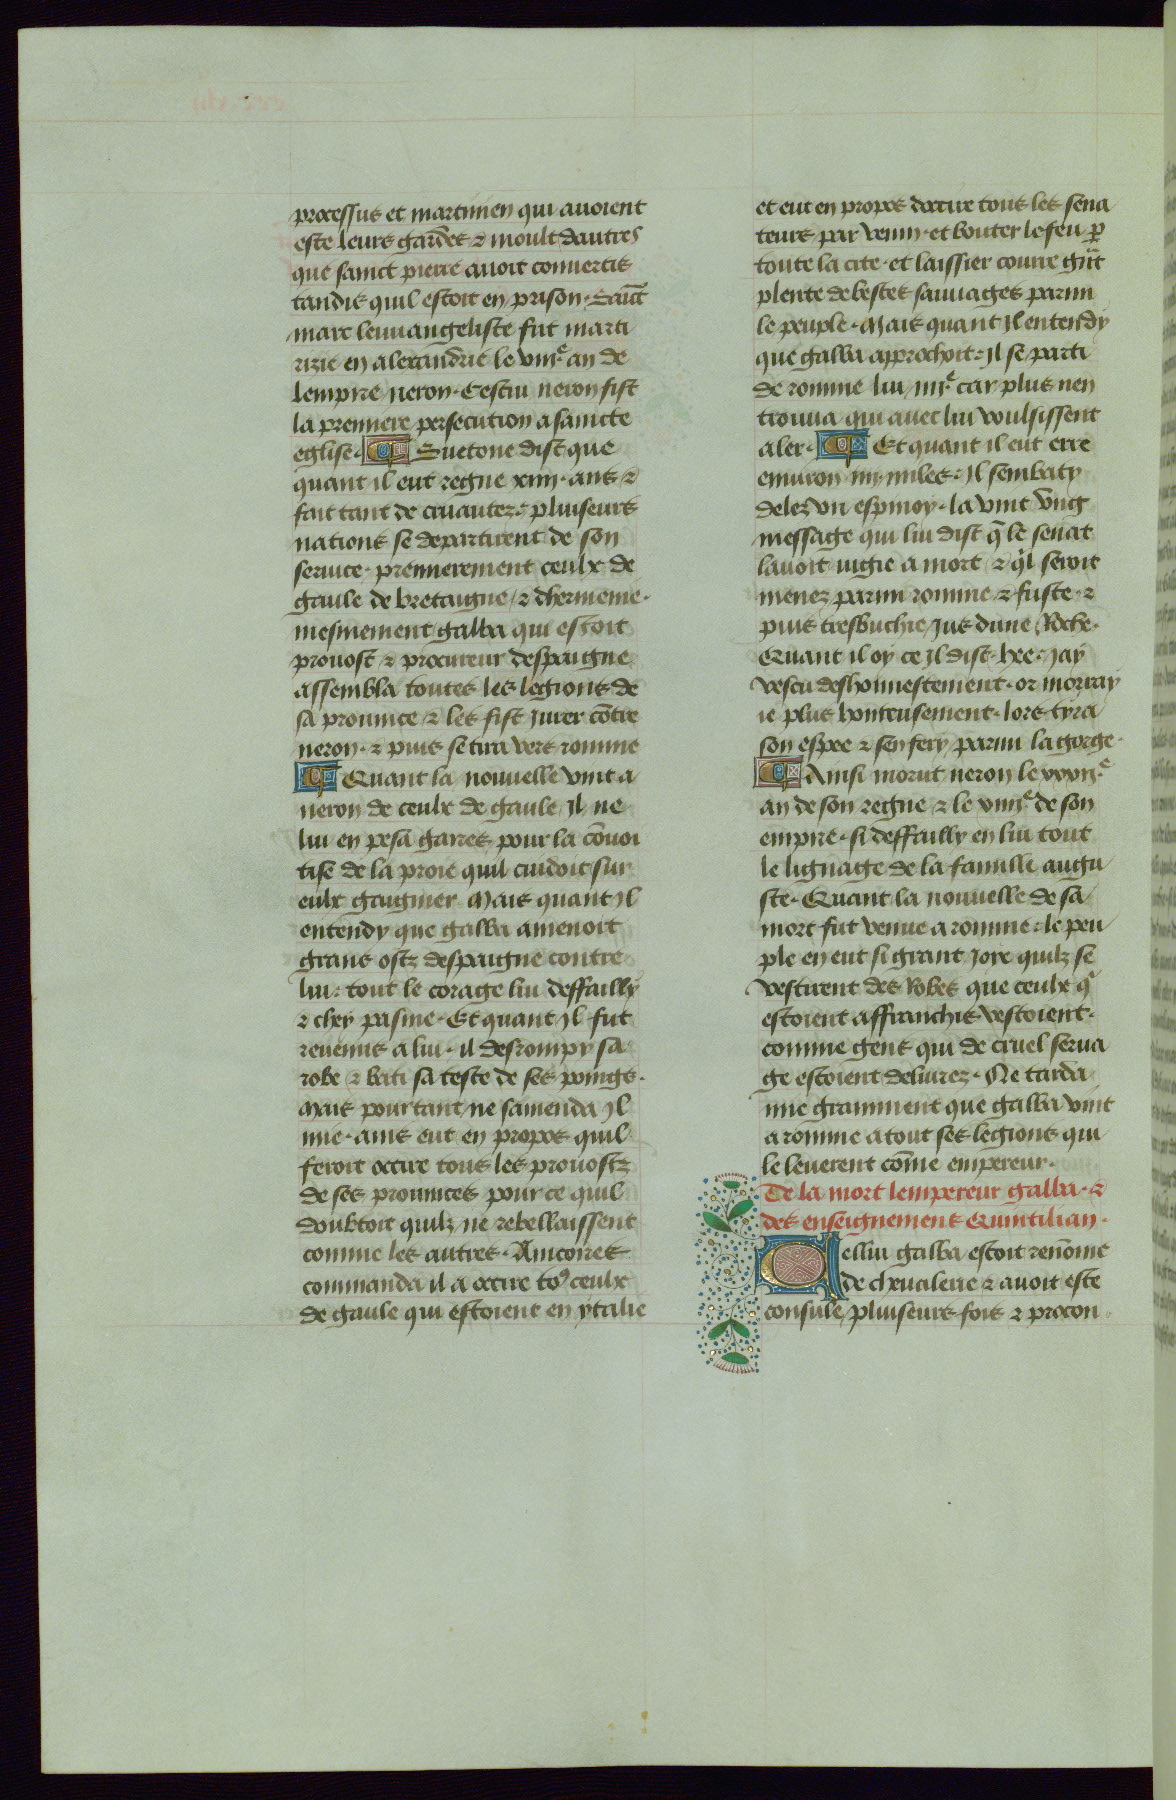 processus et martinien qui auoient
este leurs gardes & moult dautres
que sainct pierre auoit conuertis
tandis quil estoit en prison. Saīt
marc leuuangeliste fut marti
rizie en alexandrie le viiijᵉ an de
lempire neron. Cestui neron fist
la premiere persecution a saincte
eglise. Suetone dist que
quant il eut regne xiiij. ans &
fait tant de cruautez: pluiseurs
nations se departirent de son
seruice. premierement ceulx de
gaule de bretaigne / & dhermenie.
mesmement galba qui estoit
prouost & procureur despaigne
assembla toutes les legions de
sa prouince & les fist Jurer cōtre
neron. & puis se tira vers romme
Quant la nouuelle vint a
neron de ceulx de gaule Jl ne
lui en pesa gaires pour la cōuoi
tise de la proie quil cuidoit sur
eulx gaignier. Mais quant Jl
entendy que galba amenoit
grans ostz despaigne contre
lui: tout le corage lui deffailly
& chey pasme. Et quant Jl fut
reuenus a lui. il desrompy sa
robe & bati sa teste de ses poings.
Mais pourtant ne samenda Jl
mie. ains eut en propos quil
feroit occire tous les prouostz
de ses prouinces pour ce quil
doubtoit quilz ne rebellaissent
comme les autres. Ancoires
commanda il a occire to⁹ ceulx
de gaule qui estoient en ytalie
et eut en propos doccire tous les sena
teurs par venin. et bouter le feu p̲
toute la cite. et laissier courre gr̄t
plente de bestes sauuages parmi
le peuple. Mais quant Jl entendy
que galba approchoit: Jl se parti
de romme lui iiijᵉ car plus nen
trouua qui auec lui voulsissent
aler. Et quant il eut erre
enuiron iiij. miles: Jl sembaty
delez vn espinoy. la vint vng
message qui lui dist q̄ le senat
lauoit iugie a mort & q̓l seroit
menez parmi romme & fuste &
puis tresbuchie Jus dune Roche.
Quant il oy ce Jl dist. hee. Jay
vescu deshonnestement. or morray
ie plus honteusement. lors tyra
son espee & sen fery parmi la gorge.
Ainsi morut neron le xxxijᵉ
an de son regne & le xiiijᵉ de son
empire. si deffailly en lui tout
le lignage de la famille augu
ste. Quant la nouuelle de sa
mort fut venue a romme: le peu
ple en eut si grant Joye quilz se
vestirent des Robes que ceulx q̓
estoient affranchis vestoient.
comme gens qui de cruel serua
ge estoient deliurez. Ne tarda
mie gramment que galba vint
a romme a tout ses legions qui
le leuerent cōme empereur.
De la mort lempereur galba. &
des enseignemens Quintilian.
Cellui galba estoit renōme
de cheualerie & auoit este
consule pluiseurs fois & procon